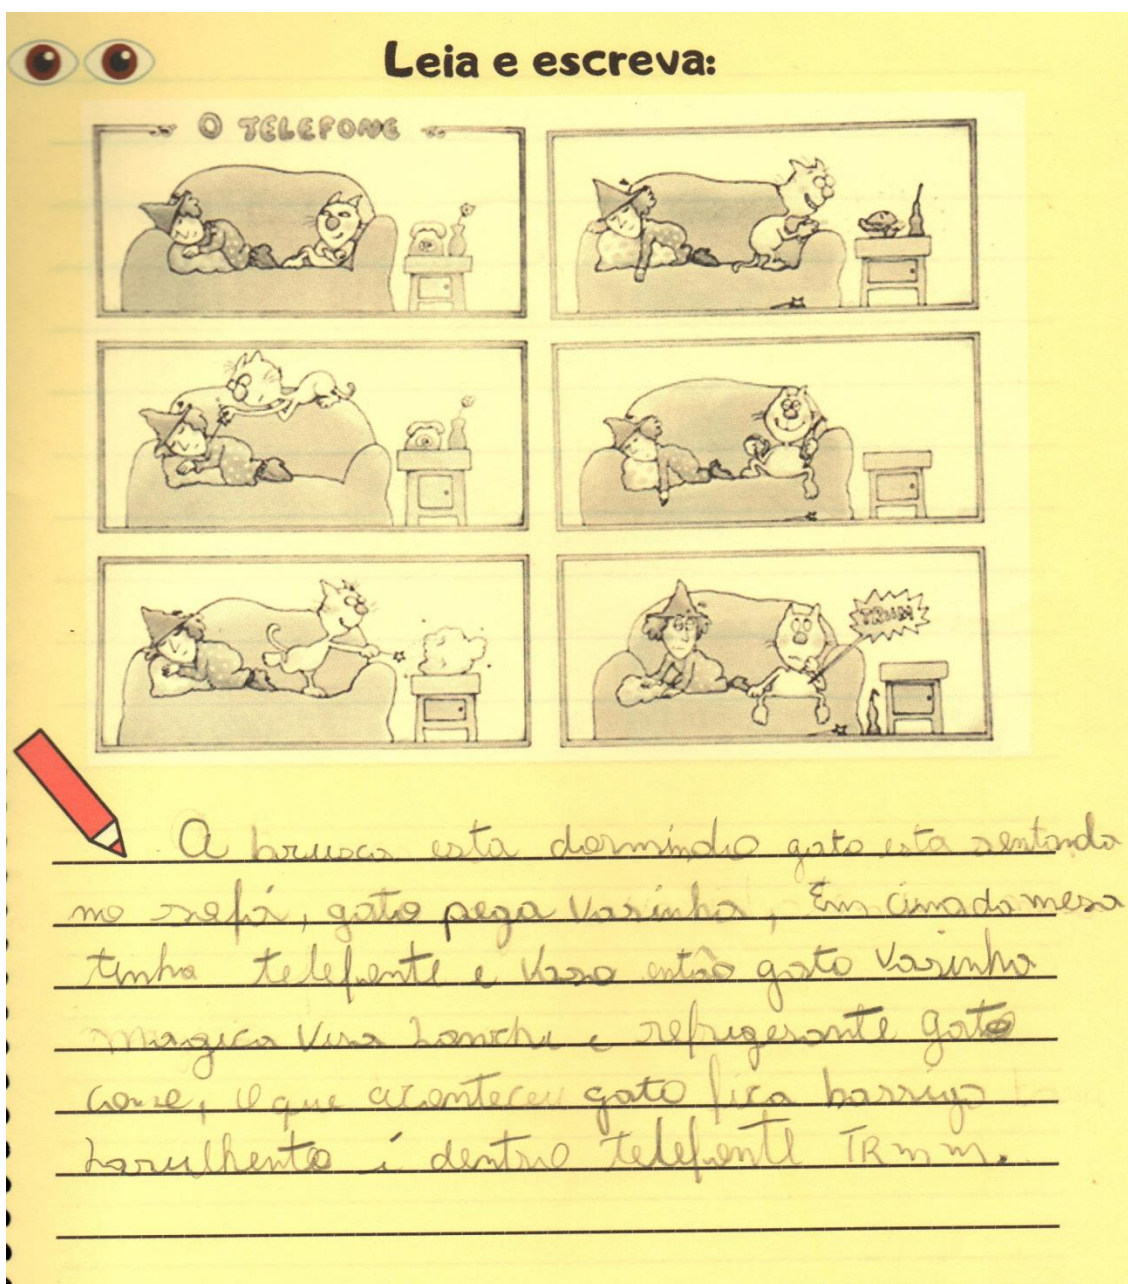 Leia e escreva:
O TELEFONE
TRIIIM
A bruxca esta dormindo gato esta sentando
no sofá, gato pega varinha, Em cima da mesa
tinha telefonte e vaso então gato varinha
magica vira Lanche e refrigerante gato
come, o que aconteceu gato fica barriga
barulhento i dentro telefonte TRmm.